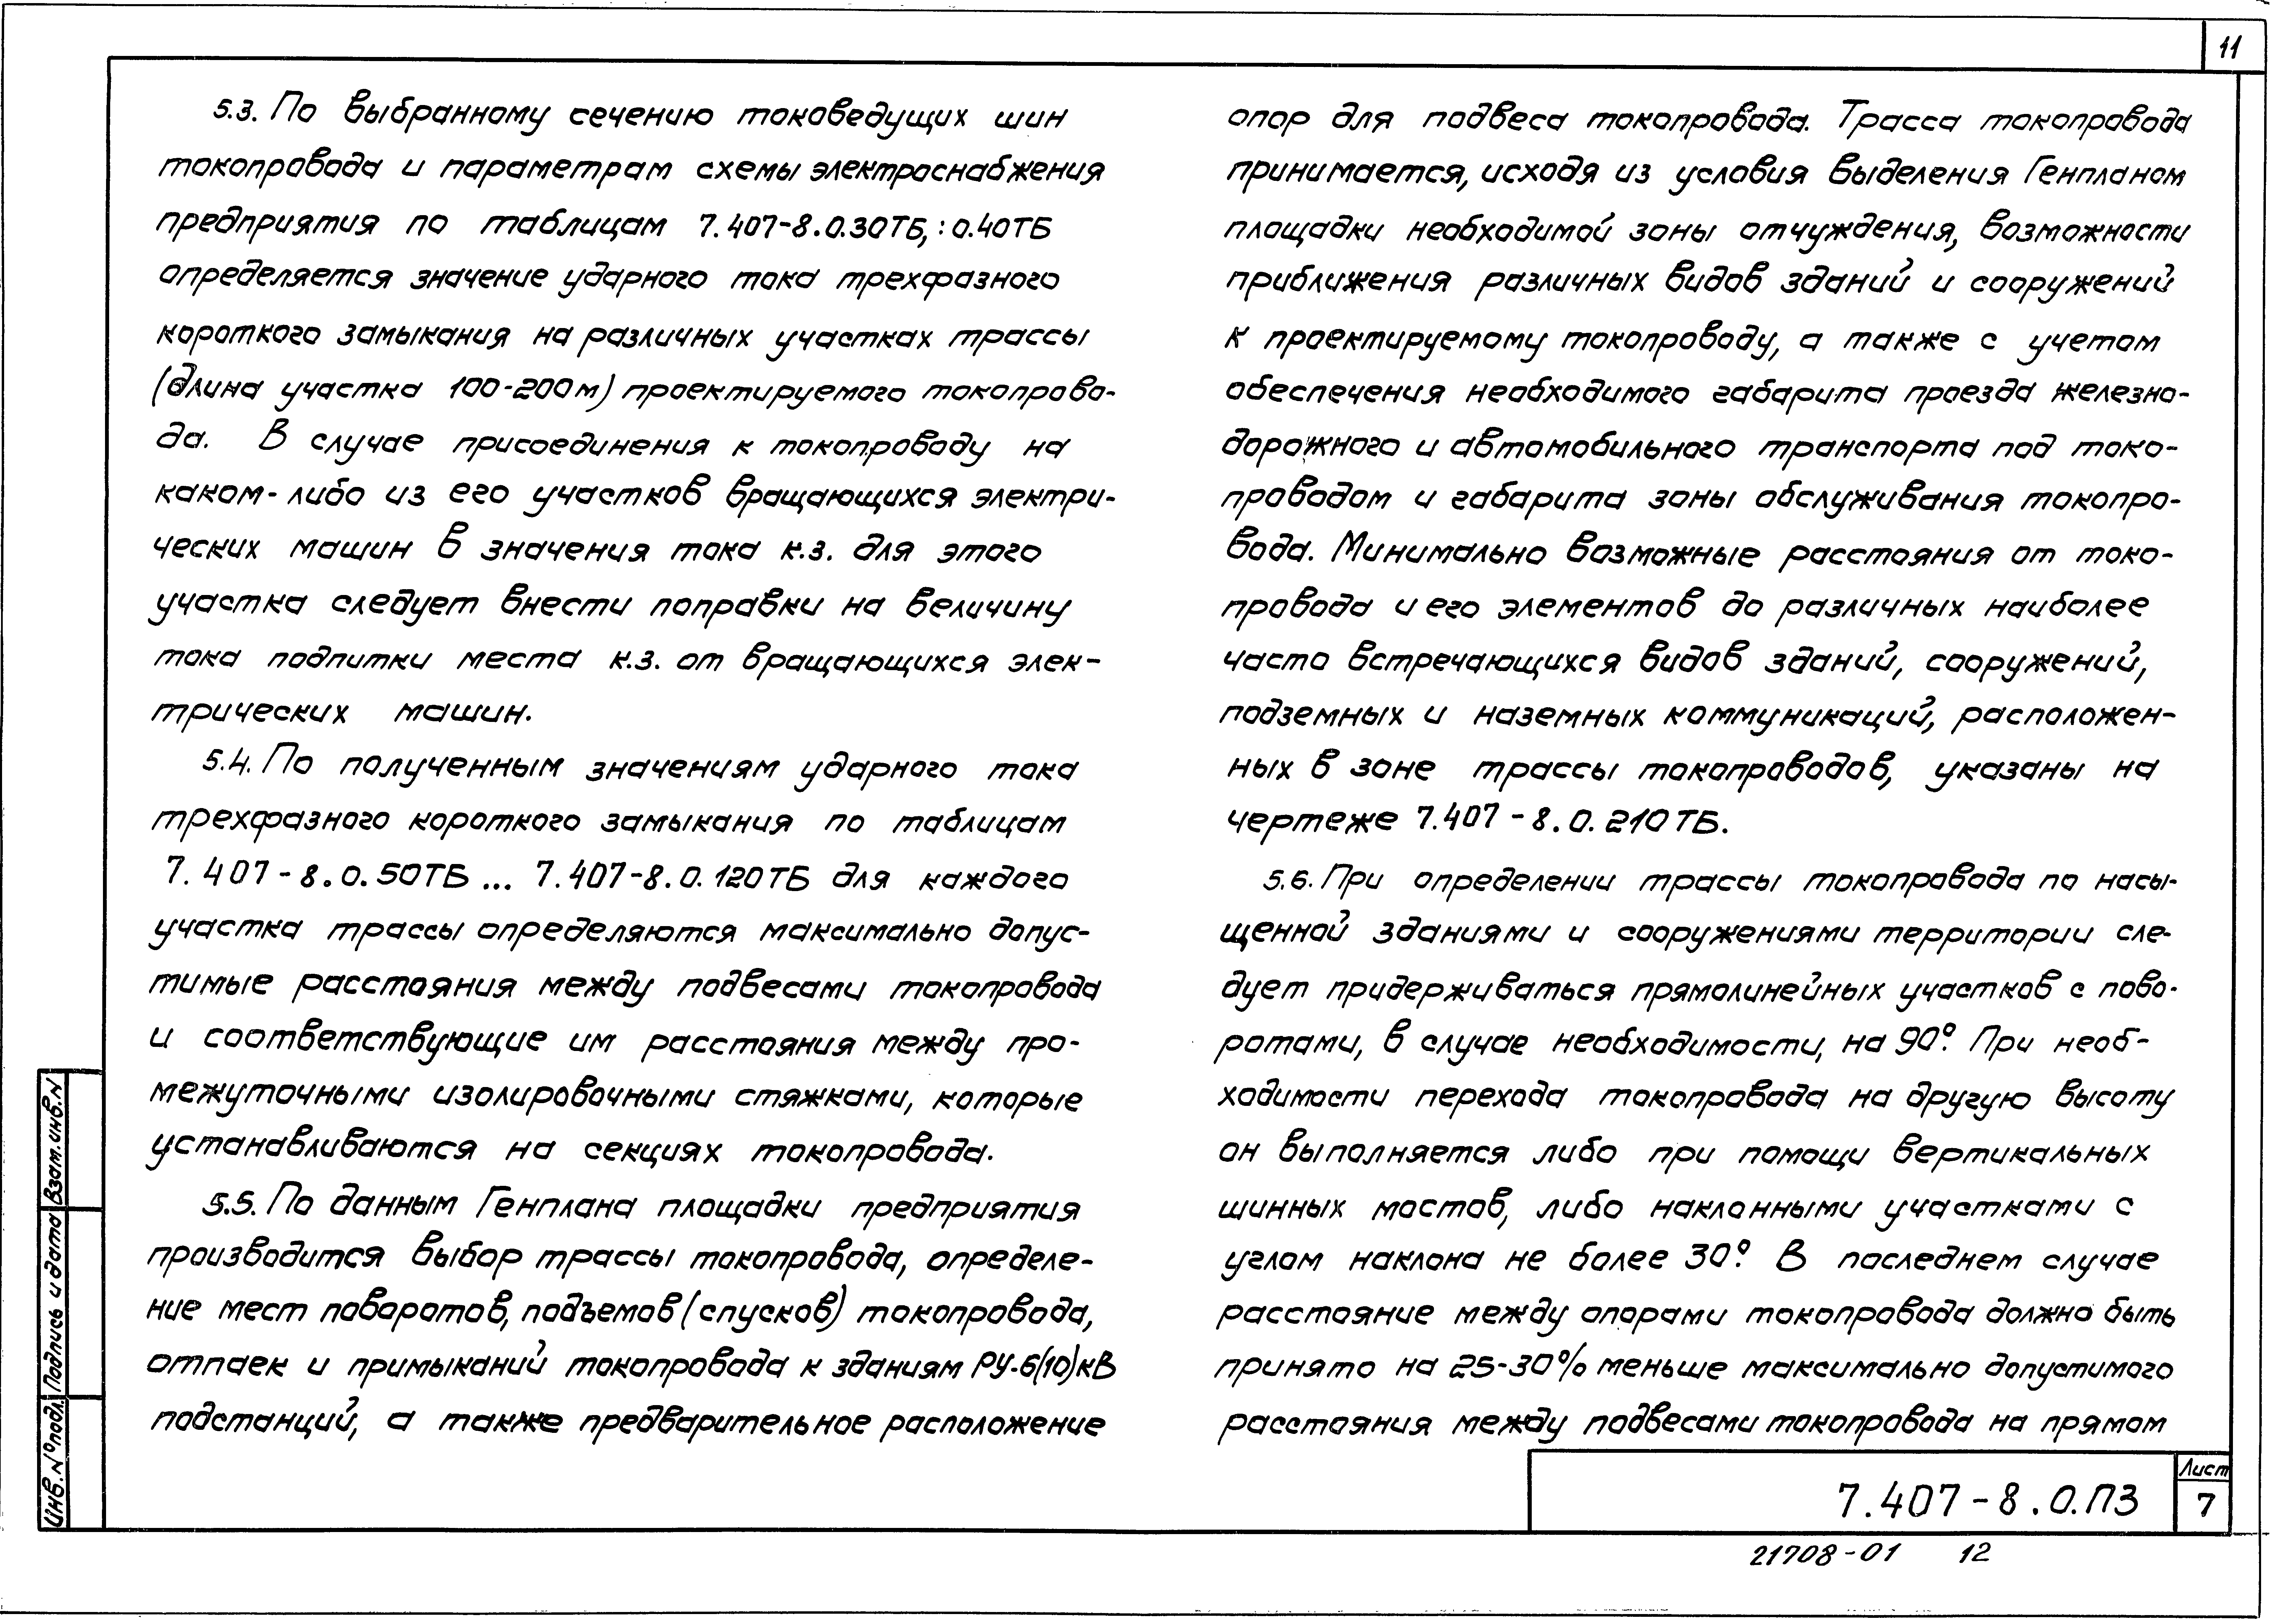 11
5.3. По выбранному сечению токоведущих шин
токопровода и параметрам схемы электроснабжения
предприятия по таблицам 7.407-8.0.30ТБ,:0.40ТБ
определяется значение ударного тока трехфазного
короткого замыкания на различных участках трассы
(длина участка 100-200м) проектируемого токопрово-
да. В случае присоединения к токопроводу на
каком-либо из его участков вращающихся электри-
ческих машин в значения тока к.з. для этого
участка следует внести поправки на величину
тока подпитки места к.з. от вращающихся элек-
трических машин.
5.4. По полученным значениям ударного тока
трехфазного короткого замыкания по таблицам
7.407-8.0.50ТБ... 7.407-8.0.120ТБ для каждого
участка трассы определяются максимально допус-
тимые расстояния между подвесами токопровода
и соответствующие им расстояния между про-
межуточными изолировочными стяжками, которые
устанавливаются на секциях токопровода.
5.5. По данным Генплана площадки предприятия
производится выбор трассы токопровода, определе-
ние мест поворотов, подъемов (спусков) токопровода,
отпаек и примыканий токопровода к зданиям РУ-6(10)кВ
подстанций, а также предварительное расположение
опор для подвеса токопровода. Трасса токопровода
принимается, исходя из условия выделения Генпланом
площадки необходимой зоны отчуждения, возможности
приближения различных видов зданий и сооружений
к проектируемому токопроводу, а также с учетом
обеспечения необходимого габарита проезда железно-
дорожного и автомобильного транспорта под токо-
проводом и габарита зоны обслуживания токопро-
вода. Минимально возможные расстояния от токо-
провода и его элементов до различных наиболее
часто встречающихся видов зданий, сооружений,
подземных и наземных коммуникаций, расположен-
ных в зоне трассы токопроводов, указаны на
чертеже 7.407-8.0.210ТБ.
5.6. При определении трассы токопровода по насы-
щенной зданиями и сооружениями территории сле-
дует придерживаться прямолинейных участков с пово-
ротами, в случае необходимости, на 90°. При необ-
ходимости перехода токопровода на другую высоту
он выполняется либо при помощи вертикальных
шинных мостов, либо наклонными участками с
углом наклона не более 30°. В последнем случае
расстояние между опорами токопровода должно быть
принято на 25-30% меньше максимально допустимого
расстояния между подвесами токопровода на прямом
Инв.N°подл. Подпись и дата Взам.инв.N
7.407-8.0.ПЗ
Лист
7
21708-01 12